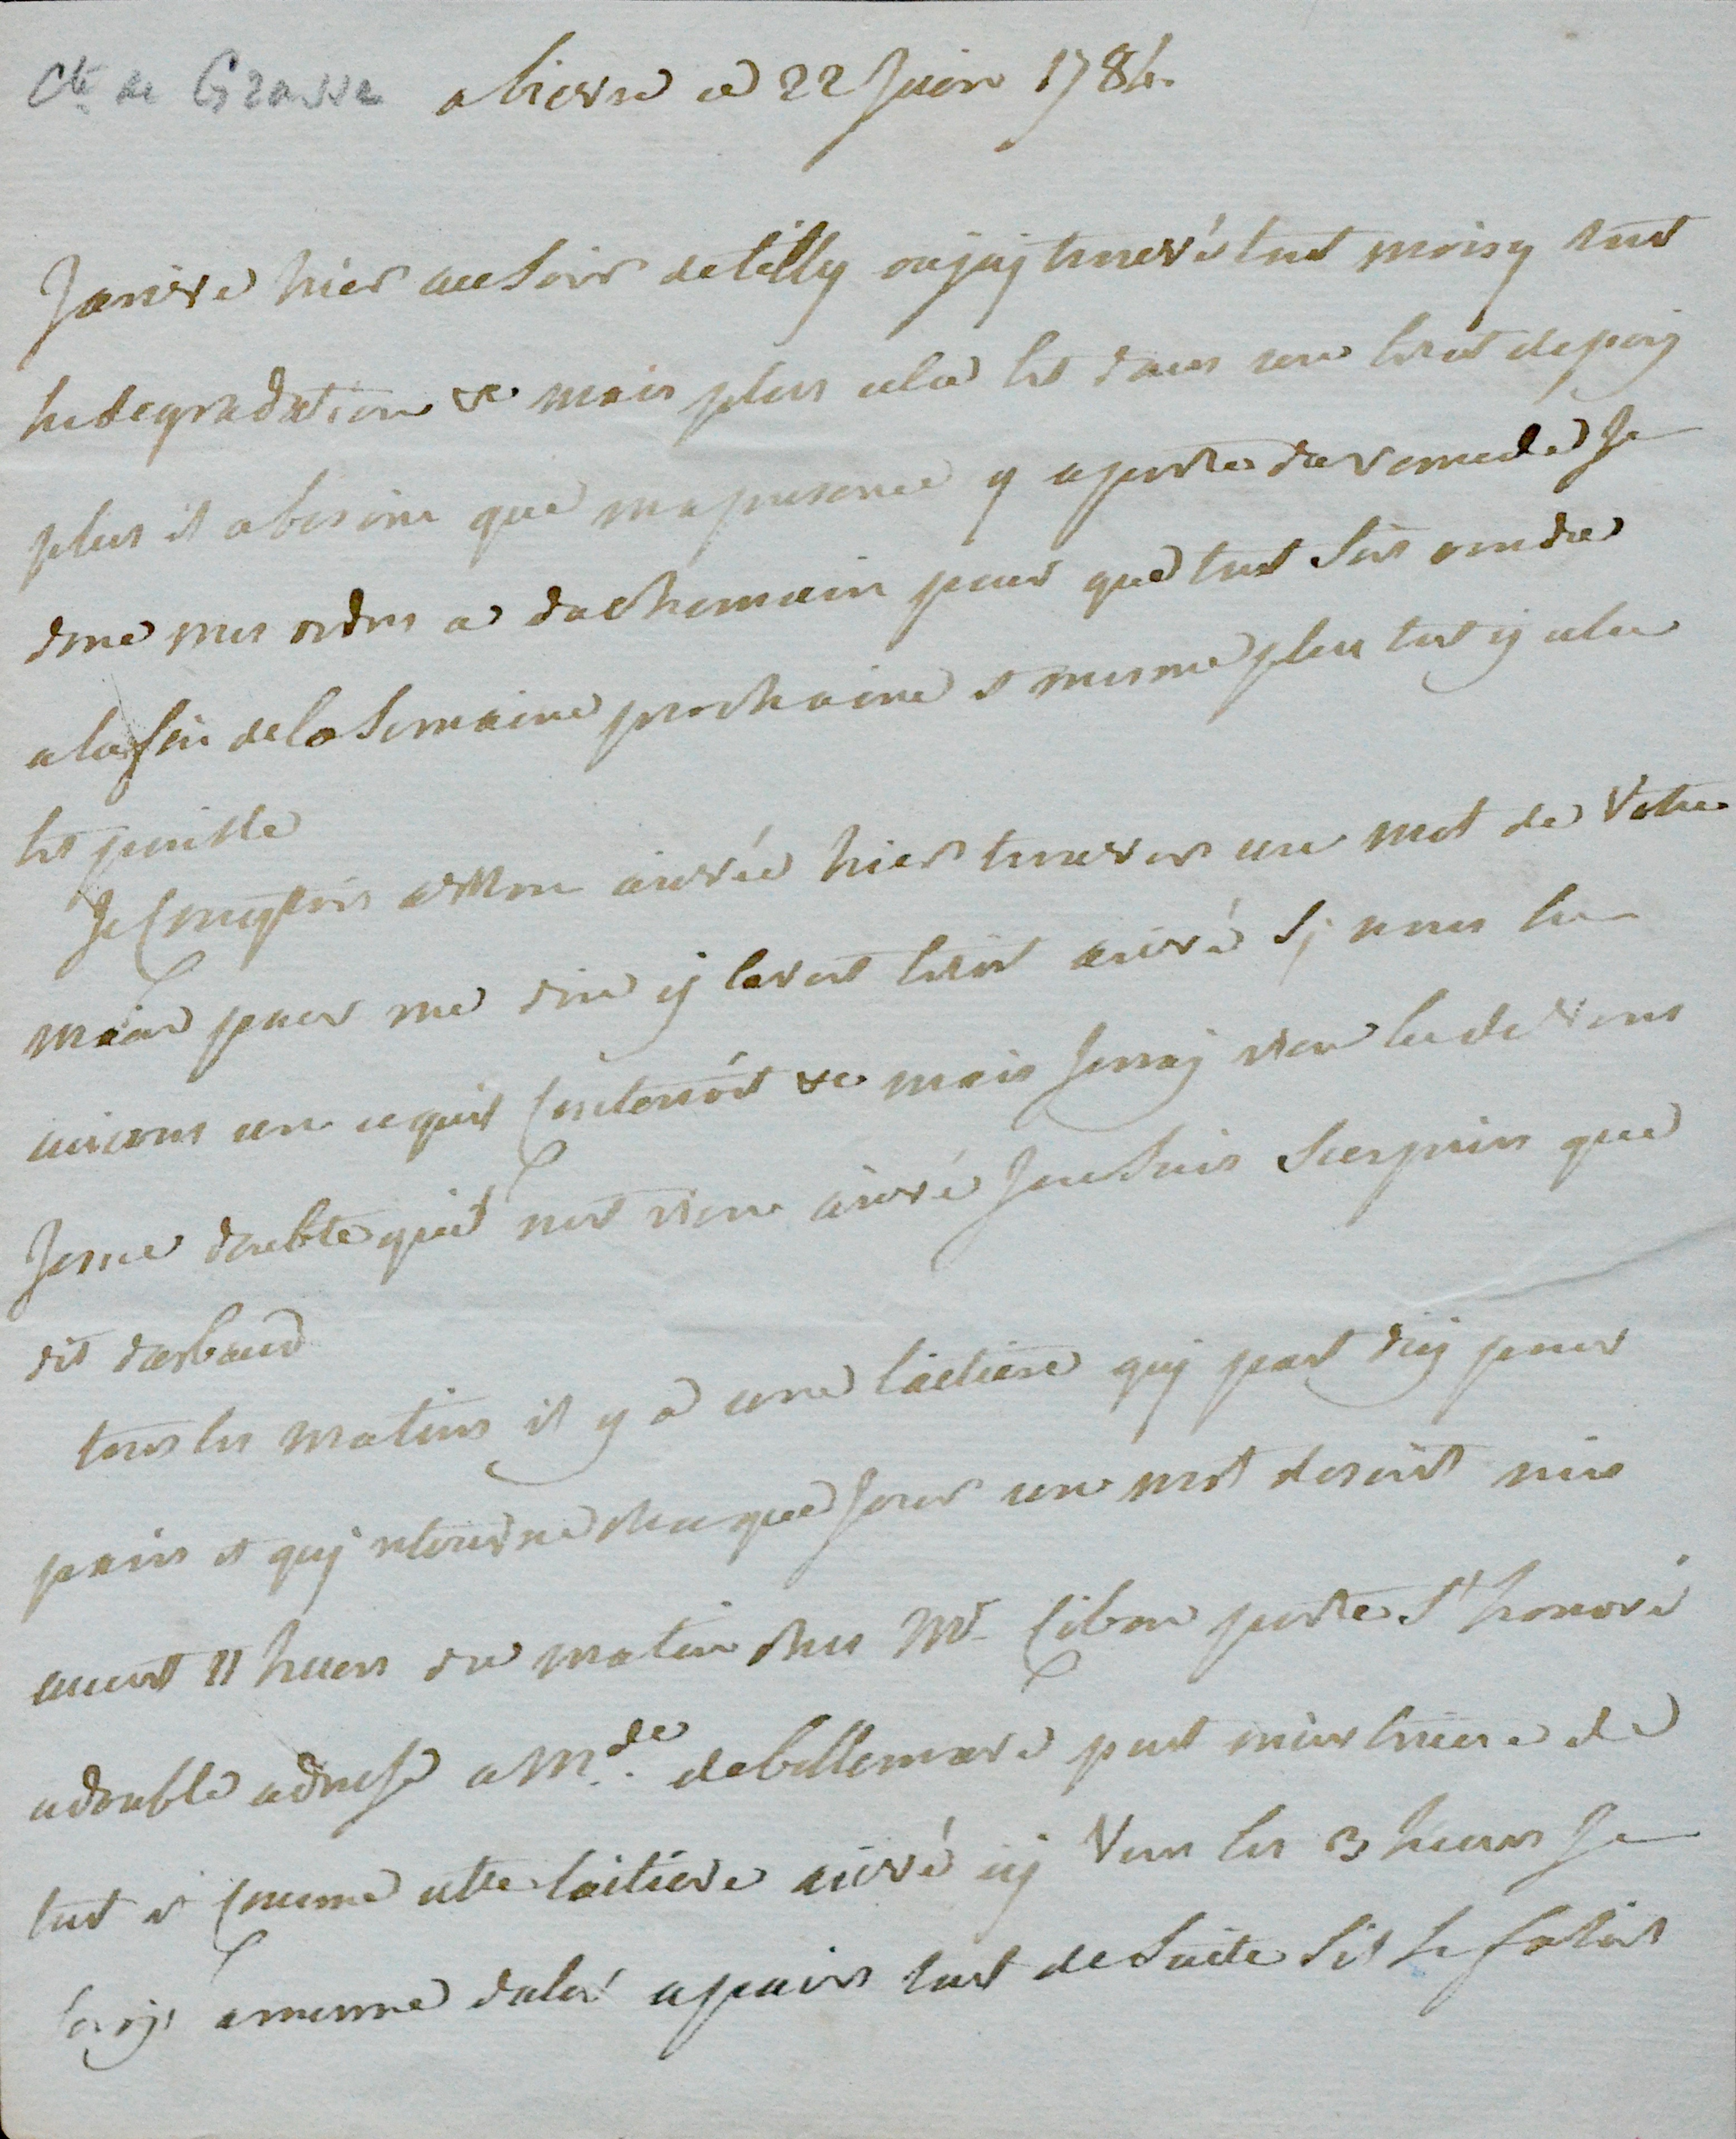 Cte de Grasse a bievre ce 22 Juin 1784.
Jarive hier au soir de tilly ou jaj trouvé tout moisy tout
la degradation &c mais plus cela est dans un trist
plus il a besoin que ma presence y aporte du remede Je
done mes ordres a da chemain pour que tout soit
a la fin de la semaine prochaine et mesme plus tot sy cela
est posible
Je Comptois a Mon arivée hier trouver un mot de Votre
main pour me dire sy leroit arivé sj nous
avions un aquit Contenoit &c mais Jenaj rien lu de vous
Jeme doubte quil nest rien arivé Jen suis surpris que
dit darbaud
tous les matins il y a une laitiere quj part dicy pour
paris et quj retourne chaque Jour un mot descrit mis
avant 11 heures du matin ches Mr Cibon porte St honoré
a double adresse a Mde de bellemare peut minstruire de
tout et Comme cette laitiere arive icy Vers les 3 heures Je
serois a mesme daler a paris tout de suite sil le faloit